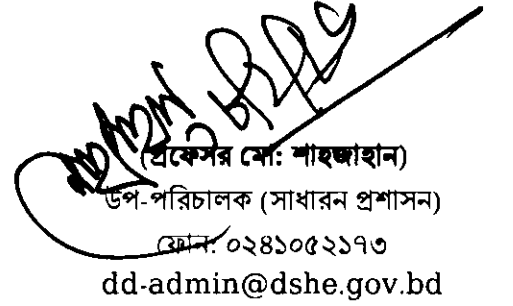 (প্রফেসর মো: শাহজাহান)
উপ-পরিচালক (সাধারন প্রশাসন)
ফোন: ০২৪১০৫২১৭৩
dd-admin@dshe.gov.bd